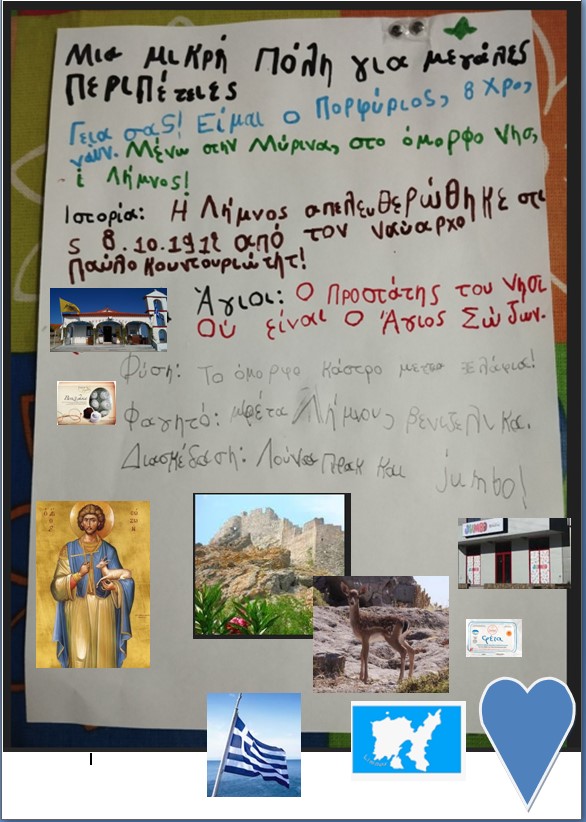 Μια μικρή Πόλη για μεγάλες
Περιπέτειες
Γεια σας! Είμαι ο Πορφύριος, 8 χρο,
νών. Μένω στην Μύρινα, στο όμορφο νησ,
ί Λήμνος!
Ιστορία: Η Λήμνος απελευθερώθηκε στι
ς 8.10.1912 από τον ναύαρχο
Παύλο Κουντουριώτη!
Άγιοι: Ο Προστάτης του νησι
ού είναι ο Άγιος Σώζων.
Φύση: Το όμορφο κάστρο με τα ελάφια!
Φαγητό: φέτα Λήμνου, βενιζελικα.
Διασκέδαση: Λούνα Παρκ και jumbo!
JUMBO
φέτα